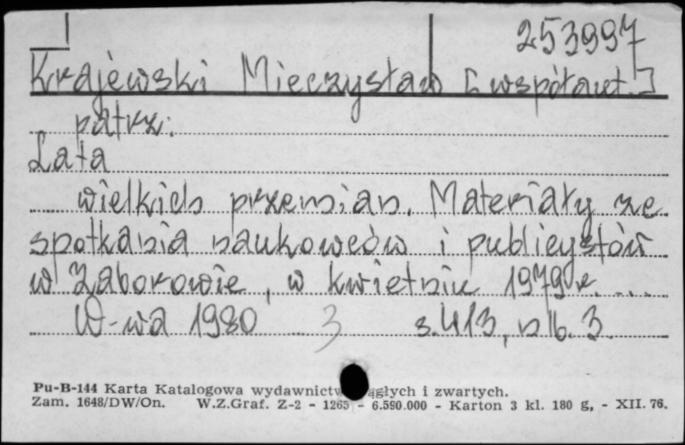 253997
Krajewski Mieczysław [współaut.]
patrz:
Lata
wielkich przemian. Materiały ze
spotkania naukowców i publicystów
w Zaborowie, w kwietniu 1979 r. ...
W-wa 1980 3 s. 413, nlb. 3.
Pu-B-144 Karta Katalogowa wydawnictw ągłych i zwartych.
Zam. 1648/DW/On. W.Z.Graf. Z-2 - 1265 - 6.590.000 - Karton 3 kl. 180 g, - XII. 76.